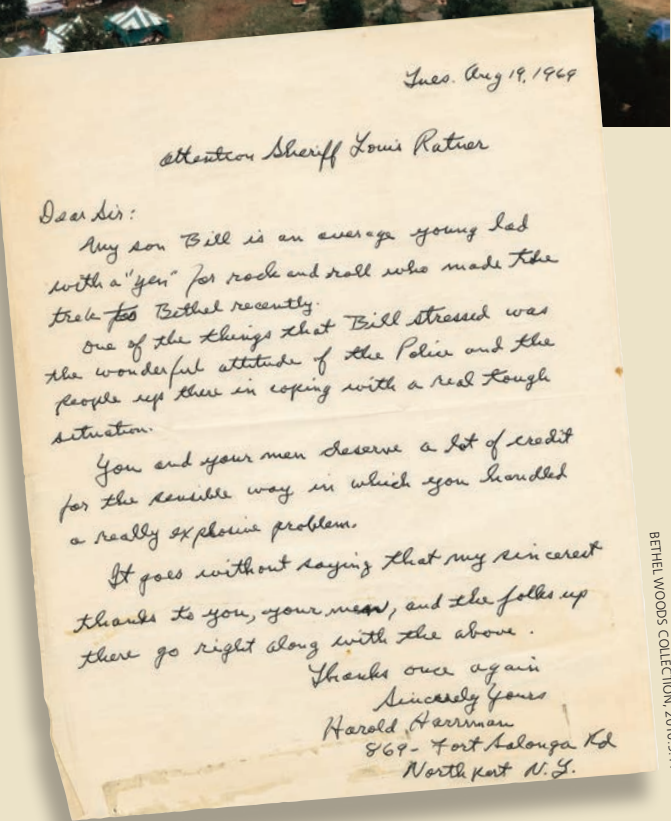 Tues. Aug 19, 1969
Attention Sheriff Louis Ratner
Dear Sir:
My son Bill is an average young lad
with a "yen" for rock and roll who made the
trek to Bethel recently.
One of the things that Bill stressed was
the wonderful attitude of the Police and the
people up there in coping with a real tough
situation.
You and your men deserve a lot of credit
for the sensible way in which you handled
a really explosive problem.
It goes without saying that my sincerest
thanks to you, your men, and the folks up
there go right along with the above.
Thanks once again
Sincerely Yours
Harold
869 - Fort Salonga Rd
Northport N.Y.
BETHEL WOODS COLLECTION,